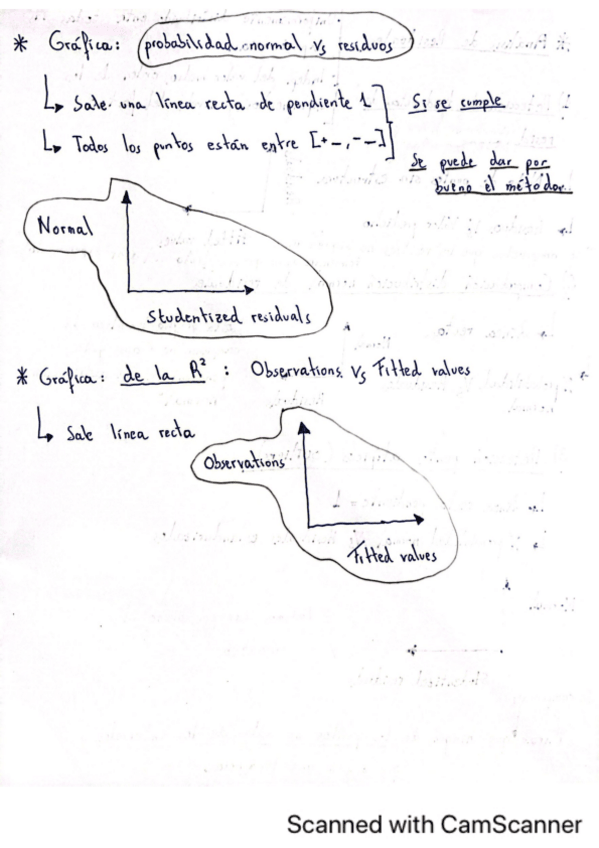 * Gráfica: probabilidad normal vs residuos
↳ Sale una línea recta de pendiente 1
Si se cumple
↳ Todos los puntos están entre [+-,--]
Se puede dar por
bueno el método.
Normal
Studentized residuals
* Gráfica: de la R² : Observations Vs Fitted values
↳ Sale línea recta
Observations
Fitted values
Scanned with CamScanner